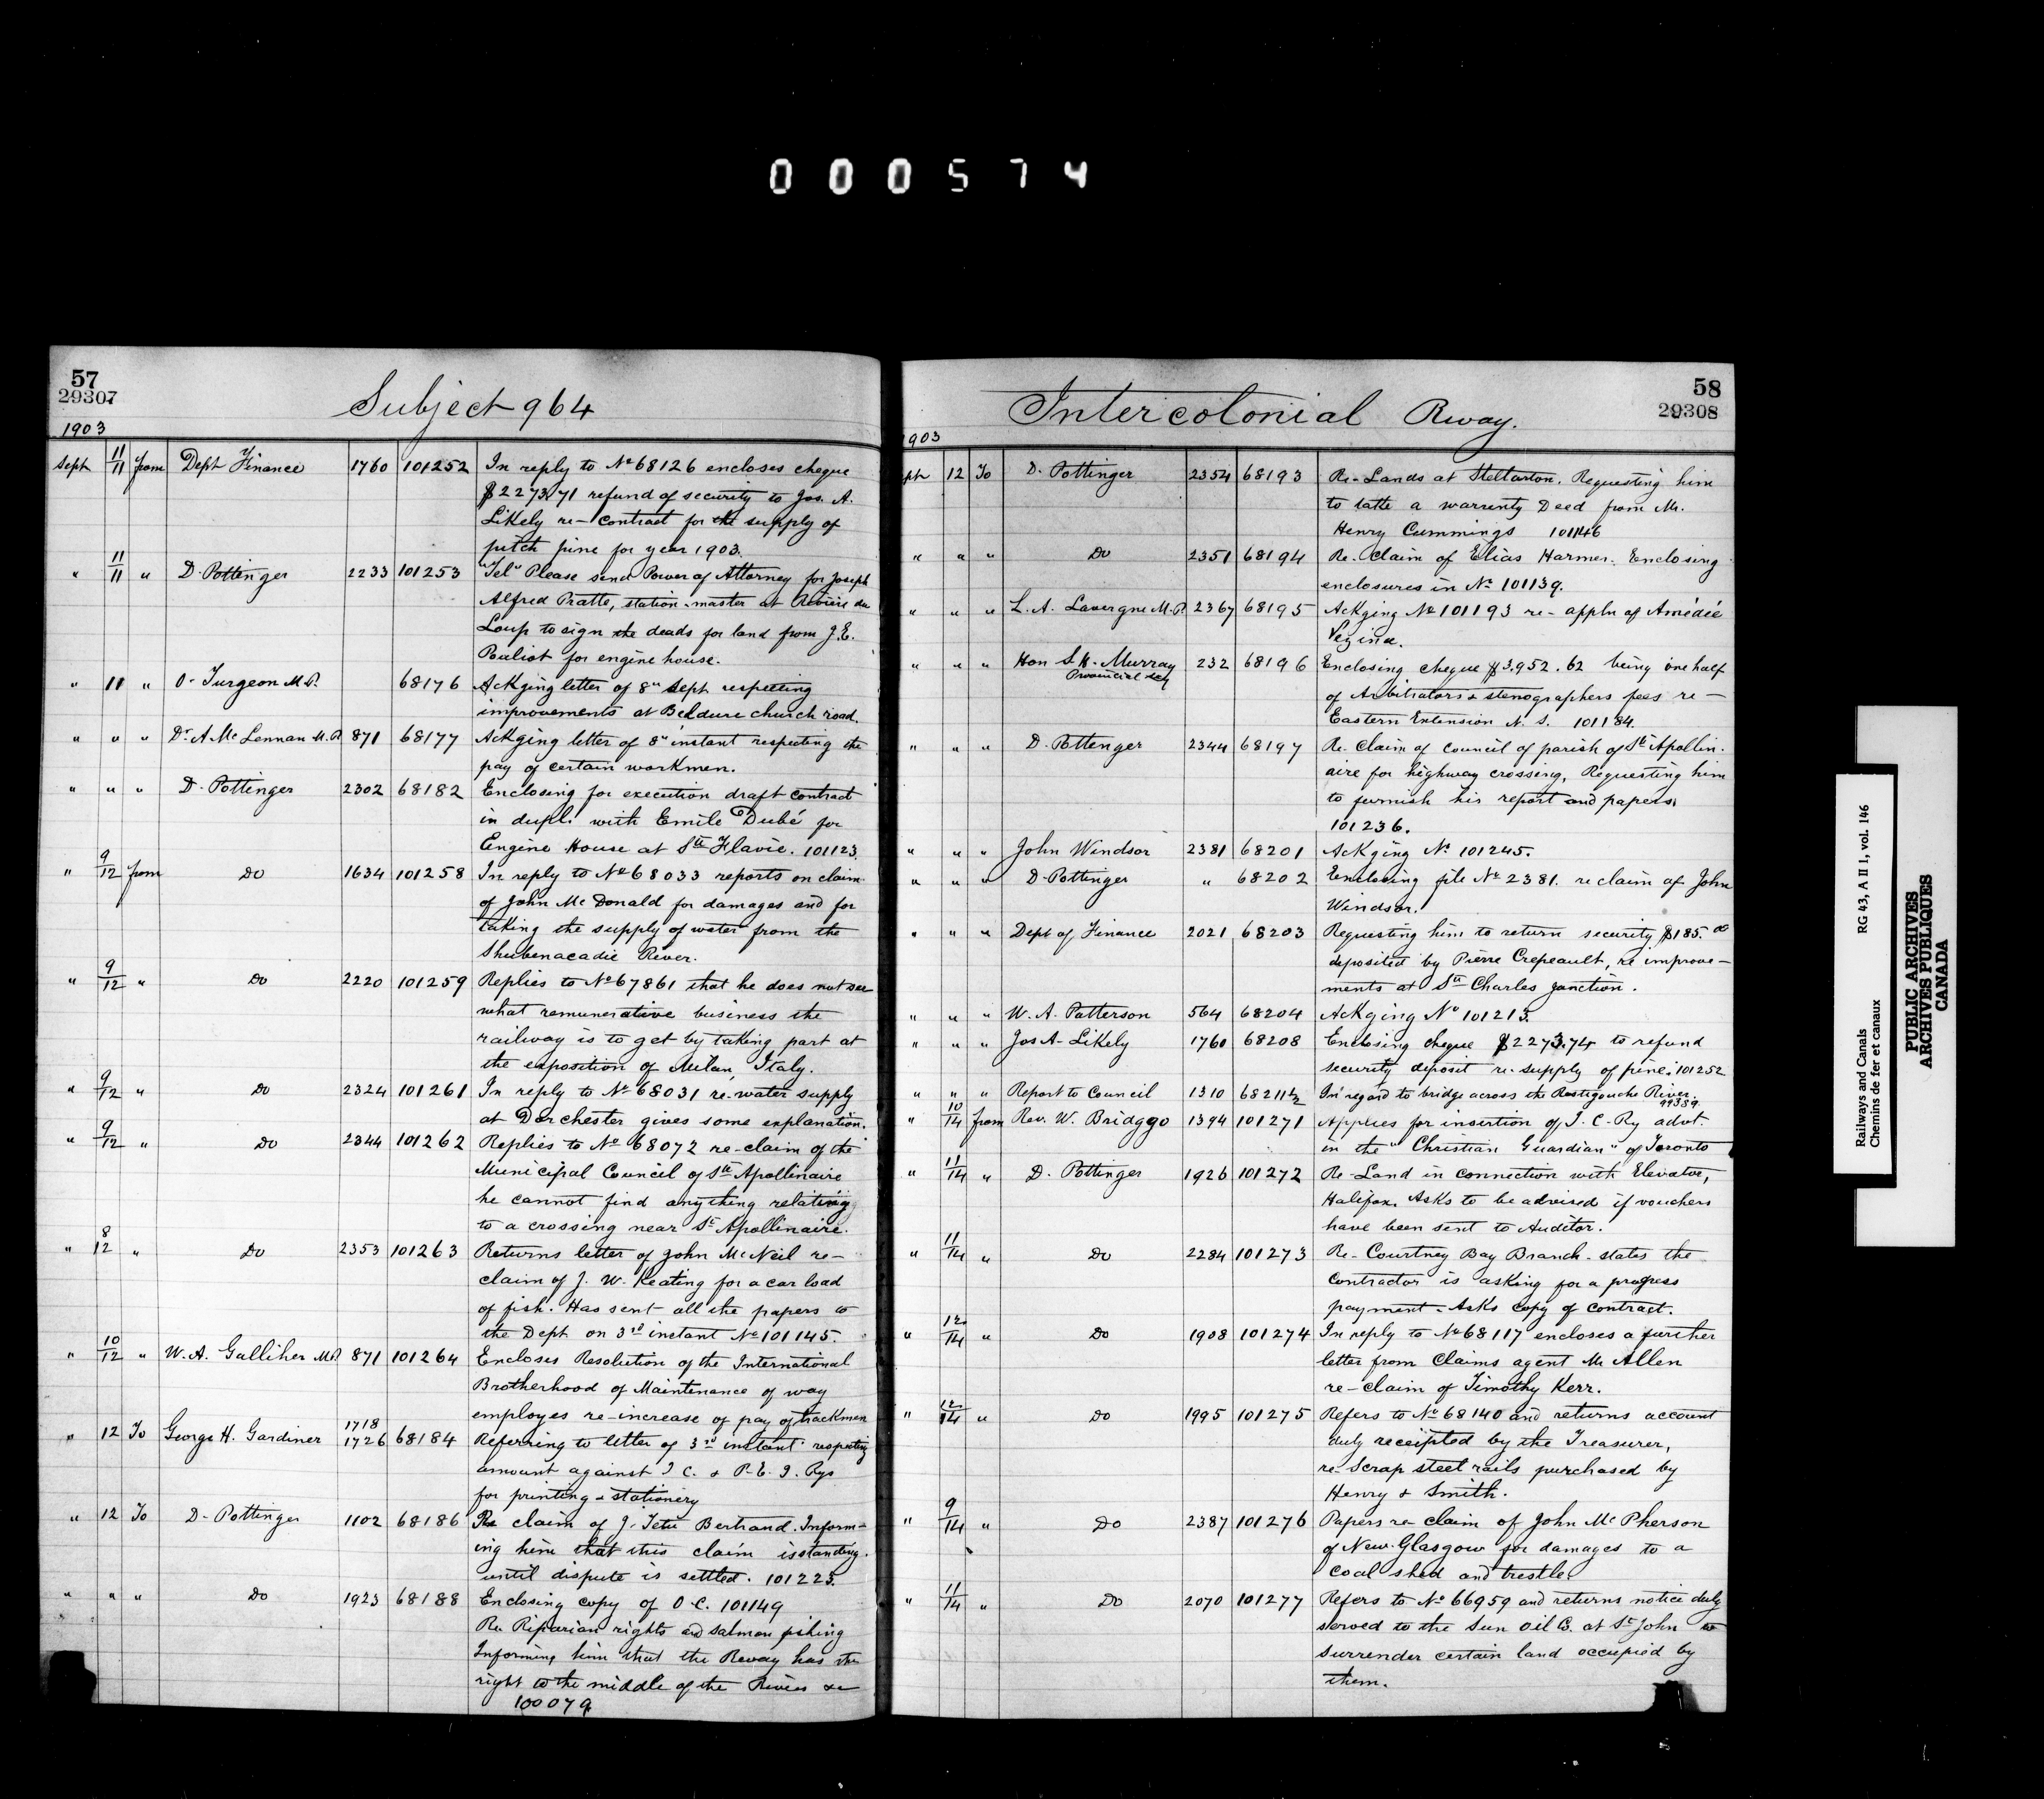 000574
57
29307
Subject 964
1903
Sept 11/11 from Dept Finance 1760 101252 In reply to No 68126 encloses cheque
$2273.71 refund of security to Jos. A.
Likely re- contract for the supply of
pitch pine for year 1903.
" 11/11 " D. Pottinger 2233 101253 "Tel" Please send Power of Attorney for Joseph
Alfred Pratte, station-master at Rivière du
Loup to sign the deads for land from J.E.
Pouliot for engine house.
" 11 " O. Turgeon M.P. 68176 Ackging letter of 8" Sept respecting
improvements at Beldune church road.
" " " Dr A McLennan M.P. 871 68177 Ackging letter of 8" instant respecting the
pay of certain workmen.
" " " D. Pottinger 2302 68182 Enclosing for execution draft contract
in dupl. with Emile Dubé for
Engine House at Ste Flavie. 101123.
" 9/12 from Do 1634 101258 In reply to No 68033 reports on claim
of John McDonald for damages and for
taking the supply of water from the
Shubenacadie River.
" 9/12 " Do 2220 101259 Replies to No 67861 that he does not see
what remunerative business the
railway is to get by taking part at
the exposition of Milan, Italy.
" 9/12 " Do 2324 101261 In reply to No 68031 re-water supply
at Dorchester gives some explanation.
" 9/12 " Do 2344 101262 Replies to No 68072 re-claim of the
Municipal Council of Ste Apollinaire
he cannot find anything relating
to a crossing near St Apollinaire.
" 8/12 " Do 2353 101263 Returns letter of John McNeil re-
claim of J. W. Keating for a car load
of fish. Has sent all the papers to
the Dept on 3rd instant No 101145.
" 10/12 " W. A. Galliher M.P. 871 101264 Encloses Resolution of the International
Brotherhood of Maintenance of way
employes re-increase of pay of trackmen
" 12 To George H. Gardiner 1718 1726 68184 Referring to letter of 3rd instant respecting
amount against I C. & P.E.I. Rys
for printing & stationery
" 12 To D. Pottinger 1102 68186 Re claim of J. Tetu Bertrand. Inform-
ing him that this claim is standing
until dispute is settled. 101223.
" " " Do 1923 68188 Enclosing copy of O.C. 101149
Re. Riparian rights and salmon fishing
Informing him that the Rway has the
right to the middle of the River &c
100079.
58
29308
Intercolonial Rway.
1903
pt 12 To D. Pottinger 2354 68193 Re-Lands at Stellarton. Requesting him
to take a warrenty Deed from Mr.
Henry Cummings 101146
" " " Do 2351 68194 Re. Claim of Elias Harmer. Enclosing
enclosures in No 101139.
" " " L. A. Lavergne M.P. 2367 68195 Ackging No 101193 re-appln of Amédée
Vezina.
" " " Hon S. H. Murray 232 68196 Enclosing cheque $3,952.62 being one half
Provincial Secy
of Arbitrators & stenographers fees re-
Eastern Extension N.S. 101184.
" " " D. Pottenger 2344 68197 Re. Claim of council of parish of St Apollin-
aire for highway crossing, Requesting him
to furnish his report and papers.
101236.
" " " John Windsor 2381 68201 Ackging No 101245.
" " " D. Pottinger " 68202 Enclosing file No 2381. re claim of John
Windsor.
" " " Dept of Finance 2021 68203 Requesting him to return security $185.00
deposited by Pierre Crepeault, re improve-
ments at St Charles Junction.
" " " W. A. Patterson 564 68204 Ackging No 101213.
" " " Jos A. Likely 1760 68208 Enclosing cheque $2273.74 to refund
security deposit re-supply of pine. 101252
" " " Report to Council 1310 68211½ In regard to bridge across the Restigouche River.
99389.
" 10/14 from Rev. W. Bridggo 1394 101271 Applies for insertion of I.C.Ry advt.
in the "Christian Guardian" of Toronto
" 11/14 " D. Pottinger 1926 101272 Re-Land in connection with Elevator,
Halifax. Asks to be advised if vouchers
have been sent to Auditor.
" 11/14 " Do 2284 101273 Re-Courtney Bay Branch. states the
contractor is asking for a progress
payment. Asks copy of contract.
" 12/14 " Do 1908 101274 In reply to No 68117 encloses a further
letter from Claims agent Mr Allen
re-claim of Timothy Kerr.
" 12/14 " Do 1995 101275 Refers to No 68140 and returns account
duly receipted by the Treasurer,
re-Scrap steel rails purchased by
Henry & Smith.
" 9/14 " Do 2387 101276 Papers re claim of John McPherson
of New-Glasgow for damages to a
coal shed and trestle.
" 11/14 " Do 2070 101277 Refers to No 66959 and returns notice duly
served to the Sun Oil Co. at St John to
surrender certain land occupied by
them.
Railways and Canals RG 43, A II 1, vol. 146
Chemins de fer et canaux
PUBLIC ARCHIVES
ARCHIVES PUBLIQUES
CANADA